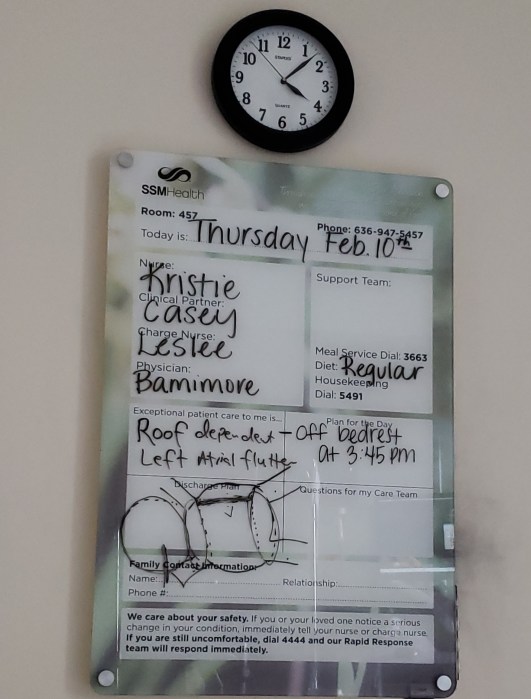 12
11 1
10 2
9 3
8 4
7 5
6
STAPLES
QUARTZ
SSMHealth
Room: 457
Phone: 636-947-5457
Today is: Thursday Feb. 10th
Nurse:
Kristie
Clinical Partner:
Casey
Charge Nurse:
Leslee
Physician:
Bamimore
Support Team:
Meal Service Dial: 3663
Diet: Regular
Housekeeping
Dial: 5491
Exceptional patient care to me is...
Roof dependent
Left Atrial flutter
Plan for the Day
- off bedrest
at 3:45 pm
Discharge Plan
Questions for my Care Team
Family Contact Information:
Name: Relationship:
Phone #:
We care about your safety. If you or your loved one notice a serious
change in your condition, immediately tell your nurse or charge nurse.
If you are still uncomfortable, dial 4444 and our Rapid Response
team will respond immediately.